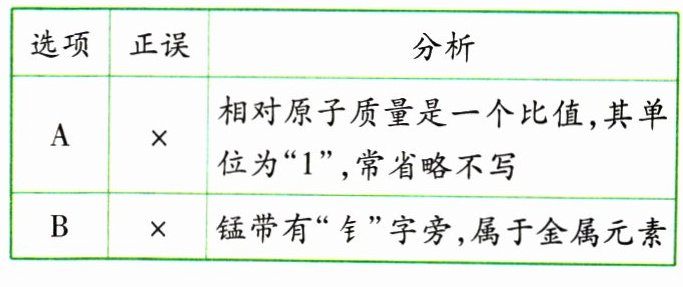 选项 正误 分析
A × 相对原子质量是一个比值,其单
位为“1”,常省略不写
B × 锰带有“钅”字旁,属于金属元素